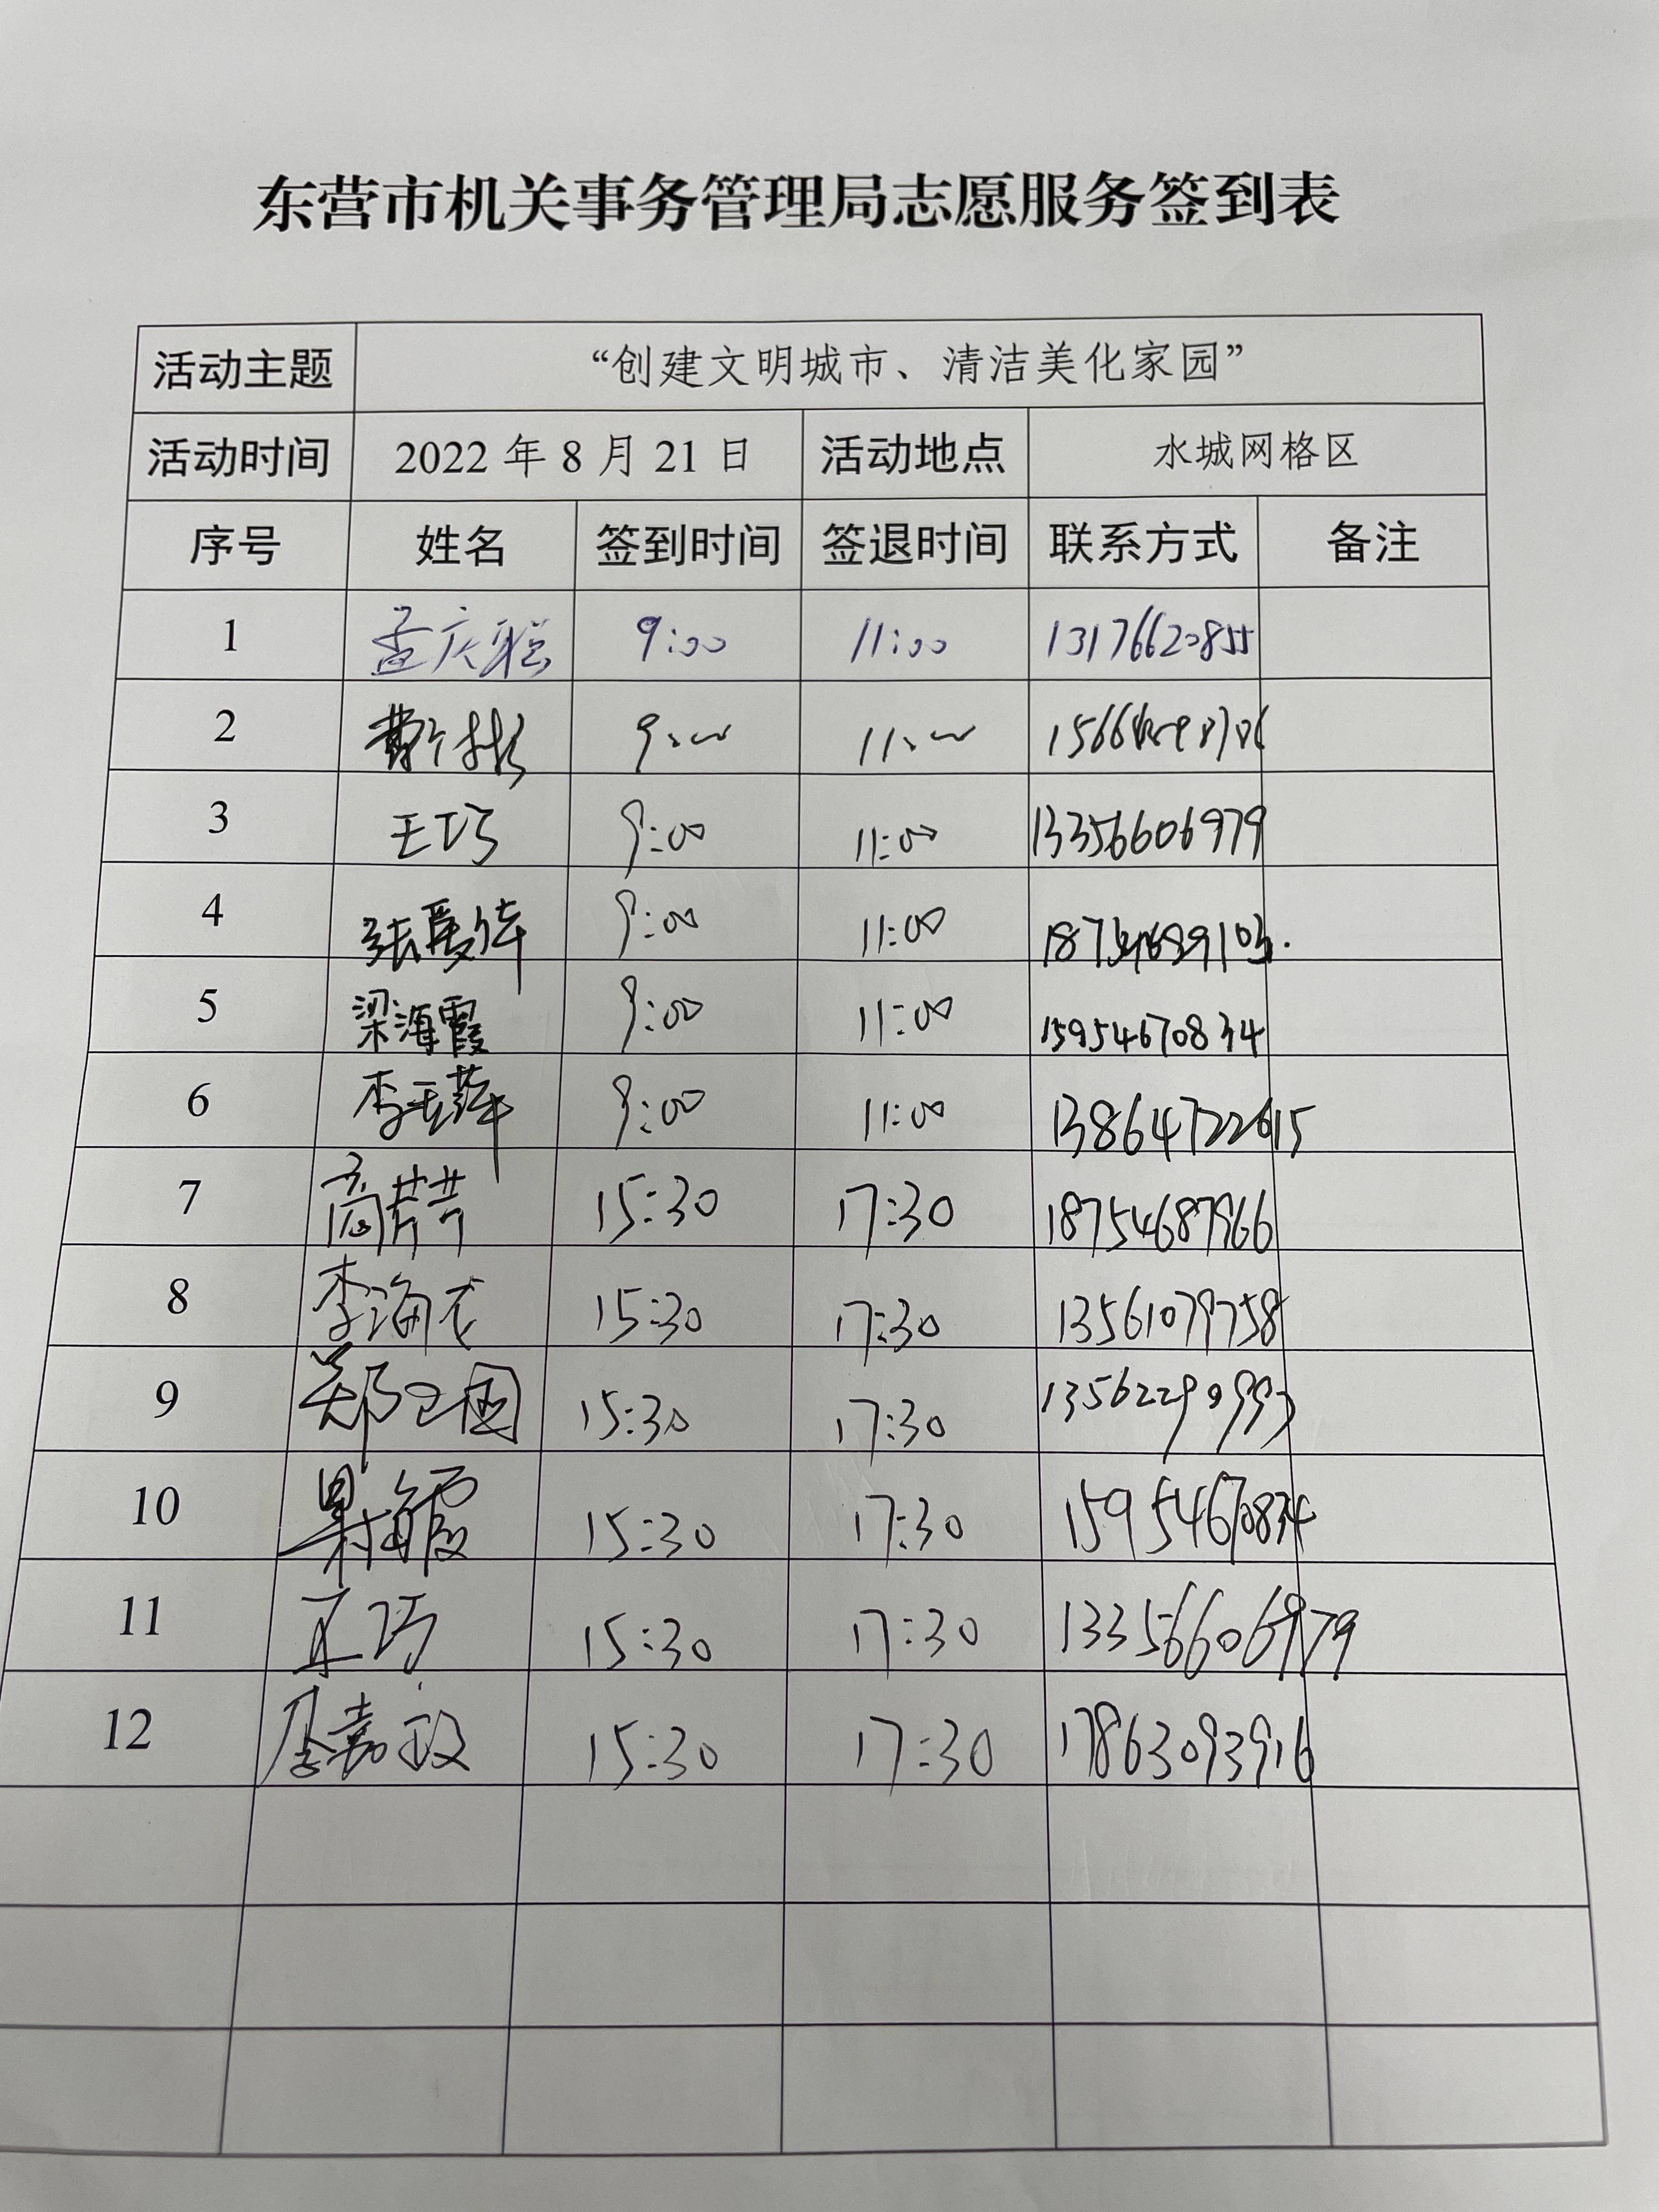 东营市机关事务管理局志愿服务签到表
活动主题 “创建文明城市、清洁美化家园”
活动时间 2022 年 8 月 21 日 活动地点 水城网格区
序号 姓名 签到时间 签退时间 联系方式 备注
1 孟庆聪 9:00 11:00 13176620855
2 9:00 11:00
3 王巧 9:00 11:00 13356606979
4 9:00 11:00
5 梁海霞 9:00 11:00 15954670834
6 李玉萍 9:00 11:00 13864722615
7 商芹芹 15:30 17:30 18754687966
8 李海龙 15:30 17:30 13561079758
9 郑卫国 15:30 17:30
10 梁海霞 15:30 17:30 15954670834
11 王巧 15:30 17:30 13356606979
12 15:30 17:30 17863093916